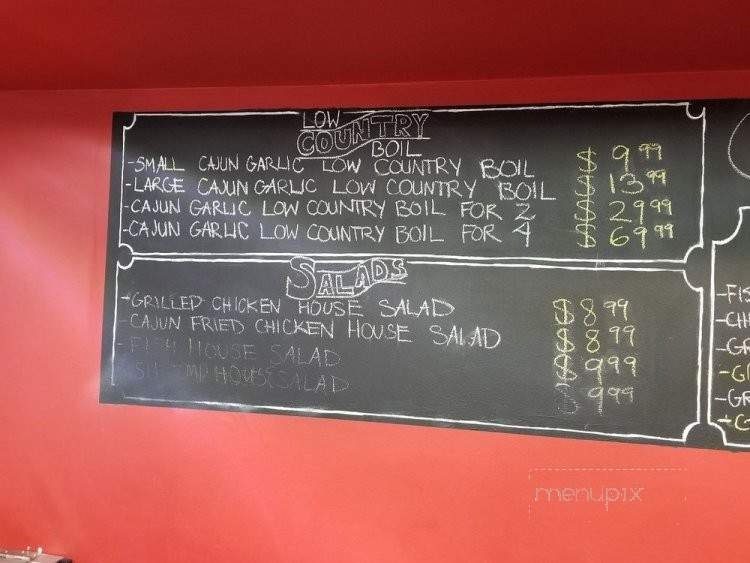 LOW
COUNTRY
BOIL
-SMALL CAJUN GARLIC LOW COUNTRY BOIL $9.99
-LARGE CAJUN GARLIC LOW COUNTRY BOIL $13.99
-CAJUN GARLIC LOW COUNTRY BOIL FOR 2 $29.99
-CAJUN GARLIC LOW COUNTRY BOIL FOR 4 $69.99
SALADS
-GRILLED CHICKEN HOUSE SALAD $8.99
-CAJUN FRIED CHICKEN HOUSE SALAD $8.99
-FISH HOUSE SALAD $9.99
-SHRIMP HOUSE SALAD $9.99
menupix